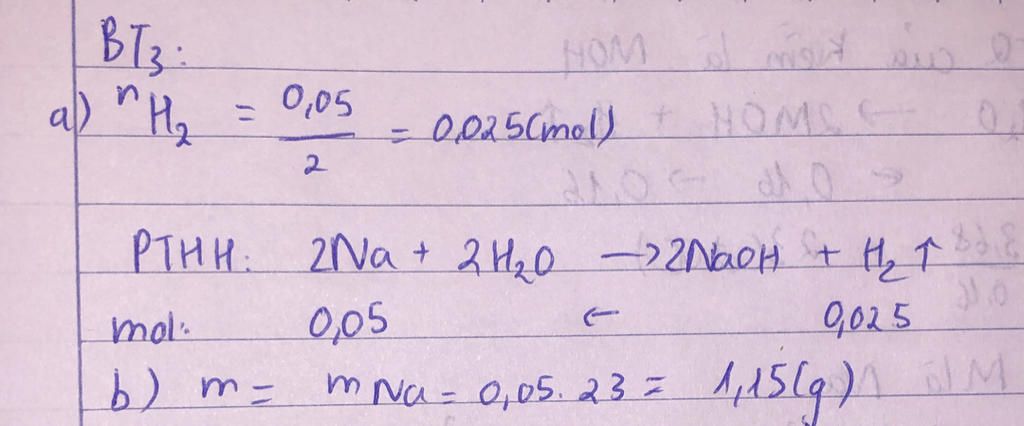 BT3:
a) nH2 = 0,05/2 = 0,025(mol)
PTHH: 2Na + 2H2O → 2NaOH + H2↑
mol: 0,05 ← 0,025
b) m = mNa = 0,05.23 = 1,15(g)